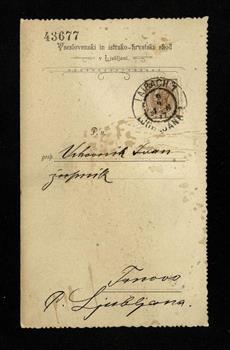 43677
Vseslovenski in istrsko-hrvatski shod
v Ljubljani.
LAIBACH 1
LJUBLJANA 1
P. n.
gosp. Vrhovnik Ivan
župnik
Trnovo
P. Ljubljana.